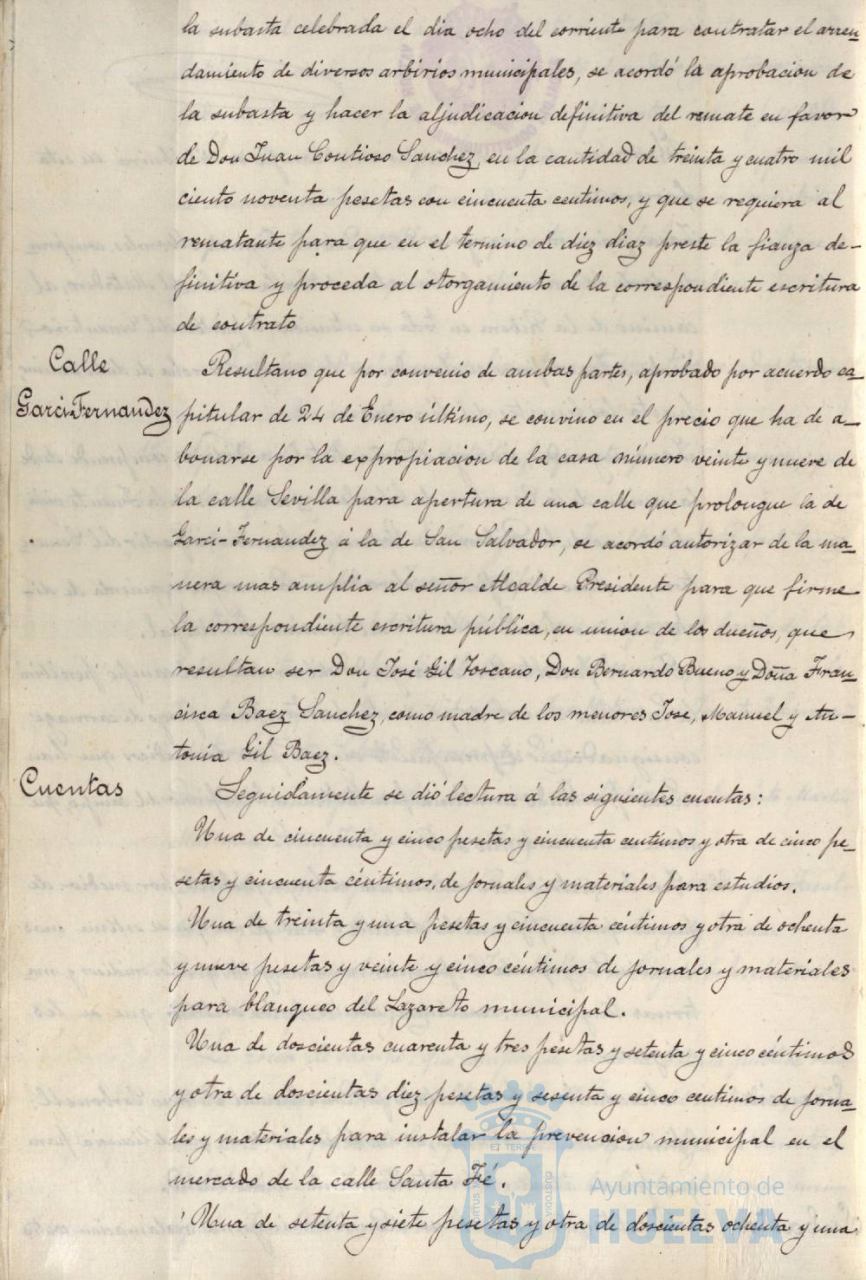 la subasta celebrada el dia ocho del corriente para contratar el arren
damiento de diversos arbirios municipales, se acordó la aprobacion de
la subasta y hacer la aljudicacion definitiva del remate en favor
de Don Juan Contioso Sanchez, en la cantidad de treinta y cuatro mil
ciento noventa pesetas con cincuenta centimos, y que se requiera al
rematante para que en el termino de diez diaz preste la fianza de-
finitiva y proceda al otorgamiento de la correspondiente escritura
de contrato
Calle
Garci-Fernandez
Resultano que por convenio de ambas partes, aprobado por acuerdo ca-
pitular de 24 de Enero último, se convino en el precio que ha de a-
bonarse por la expropiacion de la casa número veinte y nueve de
la calle Sevilla para apertura de una calle que prolongue la de
Garci-Fernandez á la de San Salvador, se acordó autorizar de la ma-
nera mas amplia al señor Alcalde Presidente para que firme
la correspondiente escritura pública, en union de los dueños, que
resultan ser Don José Gil Toscano, Don Bernardo Bueno y Doña Fran-
cisca Baez Sanchez, como madre de los menores Jose, Manuel y An-
tonia Gil Baez.
Cuentas
Seguidamente se dió lectura á las siguientes cuentas:
Una de cincuenta y cinco pesetas y cincuenta centimos y otra de cinco pe-
setas y cincuenta céntimos, de jornales y materiales para estudios.
Una de treinta y una pesetas y cincuenta céntimos y otra de ochenta
y nueve pesetas y veinte y cinco céntimos de jornales y materiales
para blanqueo del Lazareto municipal.
Una de doscientas cuarenta y tres pesetas y setenta y cinco céntimos
y otra de doscientas diez pesetas y sesenta y cinco centimos de jorna-
les y materiales para instalar la prevencion municipal en el
mercado de la calle Santa Fé.
Una de setenta y siete pesetas y otra de doscientas ochenta y una
Ayuntamiento de
HUELVA